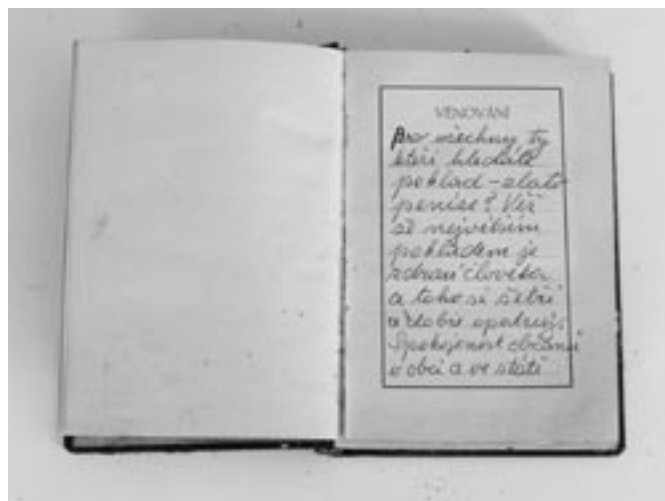 VĚNOVÁNÍ
Pro všechny ty
kteří hledáte
poklad - zlato
peníze? Věř
že největším
pokladem je
zdraví člověka
a toho si šetři
a dobře opatruj.
Spokojenost občanů
v obci a ve státě